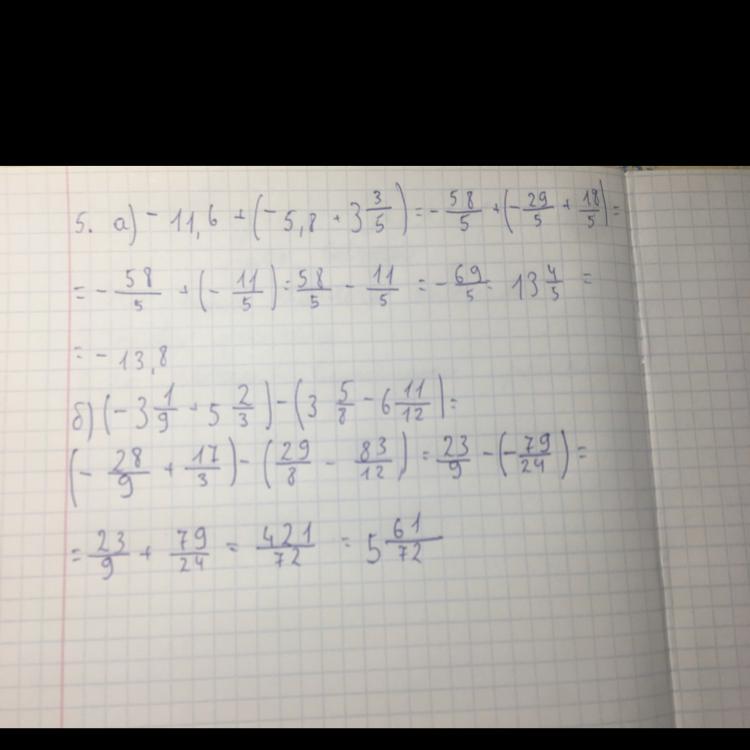 5. а) - 11,6 + (-5,8 + 3 3/5) = - 58/5 + (- 29/5 + 18/5) =
= - 58/5 + (- 11/5) = 58/5 - 11/5 = - 69/5 = 13 4/5 =
= - 13,8
б) (-3 1/9 + 5 2/3) - (3 5/8 - 6 11/12) =
(- 28/9 + 17/3) - (29/8 - 83/12) = 23/9 - (- 79/24) =
= 23/9 + 79/24 = 421/72 = 5 61/72